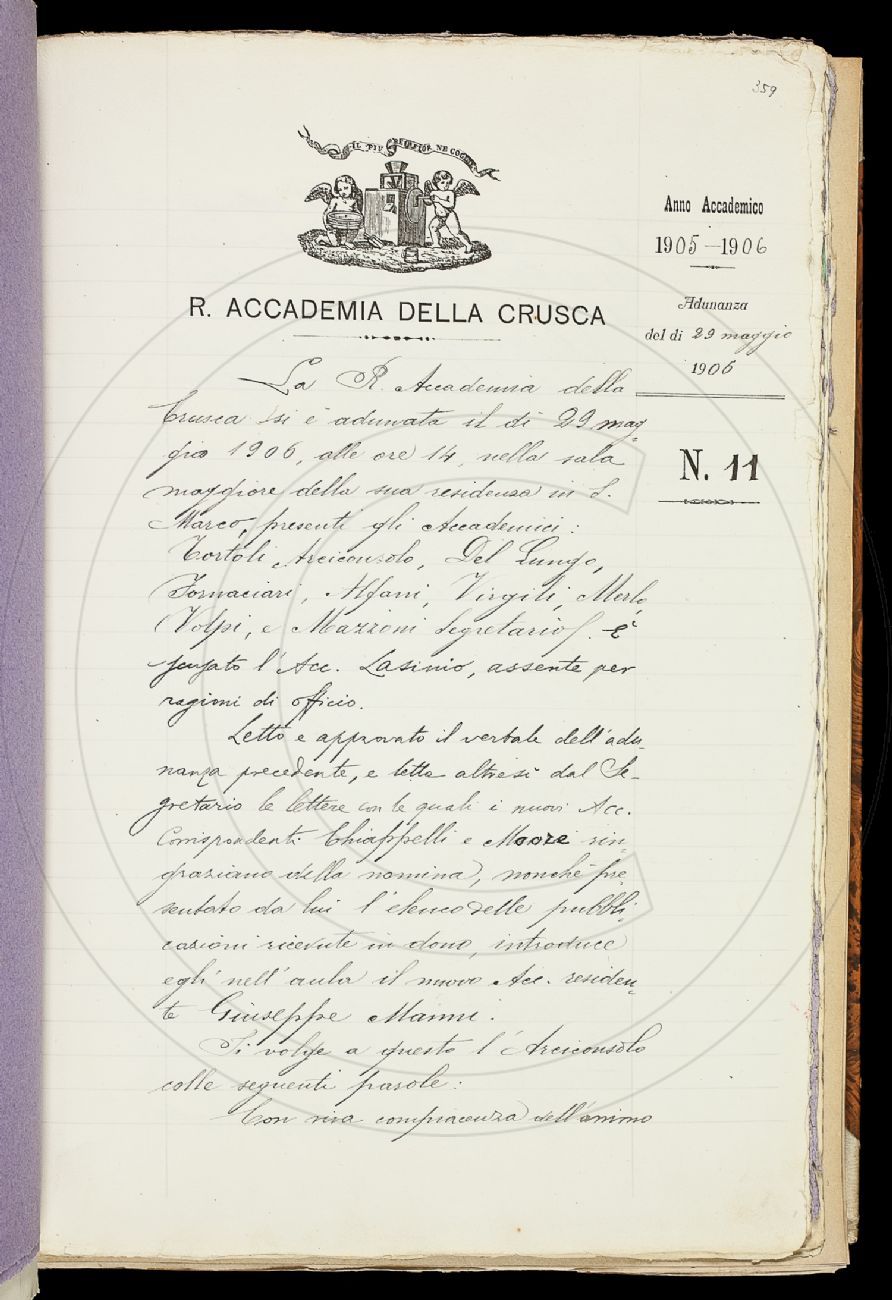 359
IL PIV BEL FIOR NE COGLIE
Anno Accademico
1905-1906
Adunanza
del dì 29 maggio
1906
R. ACCADEMIA DELLA CRUSCA
N. 11
La R. Accademia della
Crusca si è adunata il dì 29 mag-
gio 1906, alle ore 14, nella sala
maggiore della sua residenza in S.
Marco, presenti gli Accademici:
Tortoli Arciconsolo, Del Lungo,
Fornaciari, Alfani, Virgili, Merlo,
Volpi, e Mazzoni Segretario. È
scusato l'Acc. Lasinio, assente per
ragioni di officio.
Letto e approvato il verbale dell'adu-
nanza precedente, e lette altresì dal Se-
gretario le lettere con le quali i nuovi Acc.
Corrispondenti Chiappelli e Moore rin-
graziano della nomina, nonché pre-
sentato da lui l'elenco delle pubbli-
cazioni ricevute in dono, introduce
egli nell'aula il nuovo Acc. residen-
te Giuseppe Manni.
Si volge a questo l'Arciconsolo
colle seguenti parole:
Con viva compiacenza dell'animo